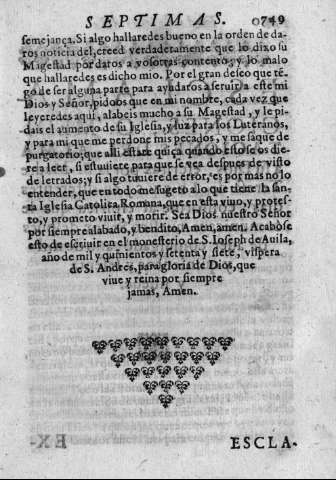 SEPTIMAS. 0749
semejança. Si algo hallaredes bueno en la orden de da-
ros noticia del, creed verdaderamente que lo dixo su
Magestad por daros a vosotras contento; y lo malo
que hallaredes es dicho mio. Por el gran desseo que tẽ-
go de ser alguna parte para ayudaros a seruir a este mi
Dios y Señor, pidoos que en mi nombre, cada vez que
leyeredes aqui, alabeis mucho a su Magestad, y le pi-
dais el aumento de su Iglesia, y luz para los Luteranos,
y para mi que me perdone mis pecados, y me saque de
purgatorio; que alli estare quiça quando esto se os die-
re a leer, si estuuiere para que se vea despues de visto
de letrados; y si algo tuuiere de error, es por mas no lo
entender, que en todo me sugeto a lo que tiene la san-
ta Iglesia Catolica Romana, que en esta viuo, y protes-
to, y prometo viuir, y morir. Sea Dios nuestro Señor
por siempre alabado, y bendito, Amen, amen. Acabòse
esto de escriuir en el monesterio de S. Ioseph de Auila,
año de mil y quinientos y setenta y siete, vispera
de S. Andres, para gloria de Dios, que
viue y reina por siempre
jamas, Amen.
EX-
ESCLA-